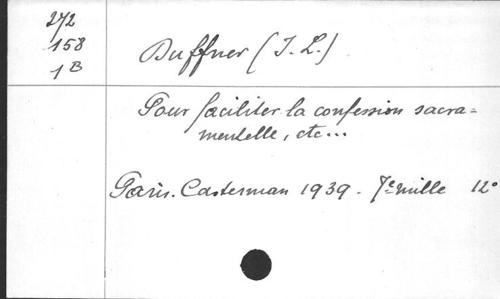 272
158
1 B
Duffner (J. L.)
Pour faciliter la confession sacra=
mentelle, etc...
Paris. Casterman 1939. 7e mille 12°